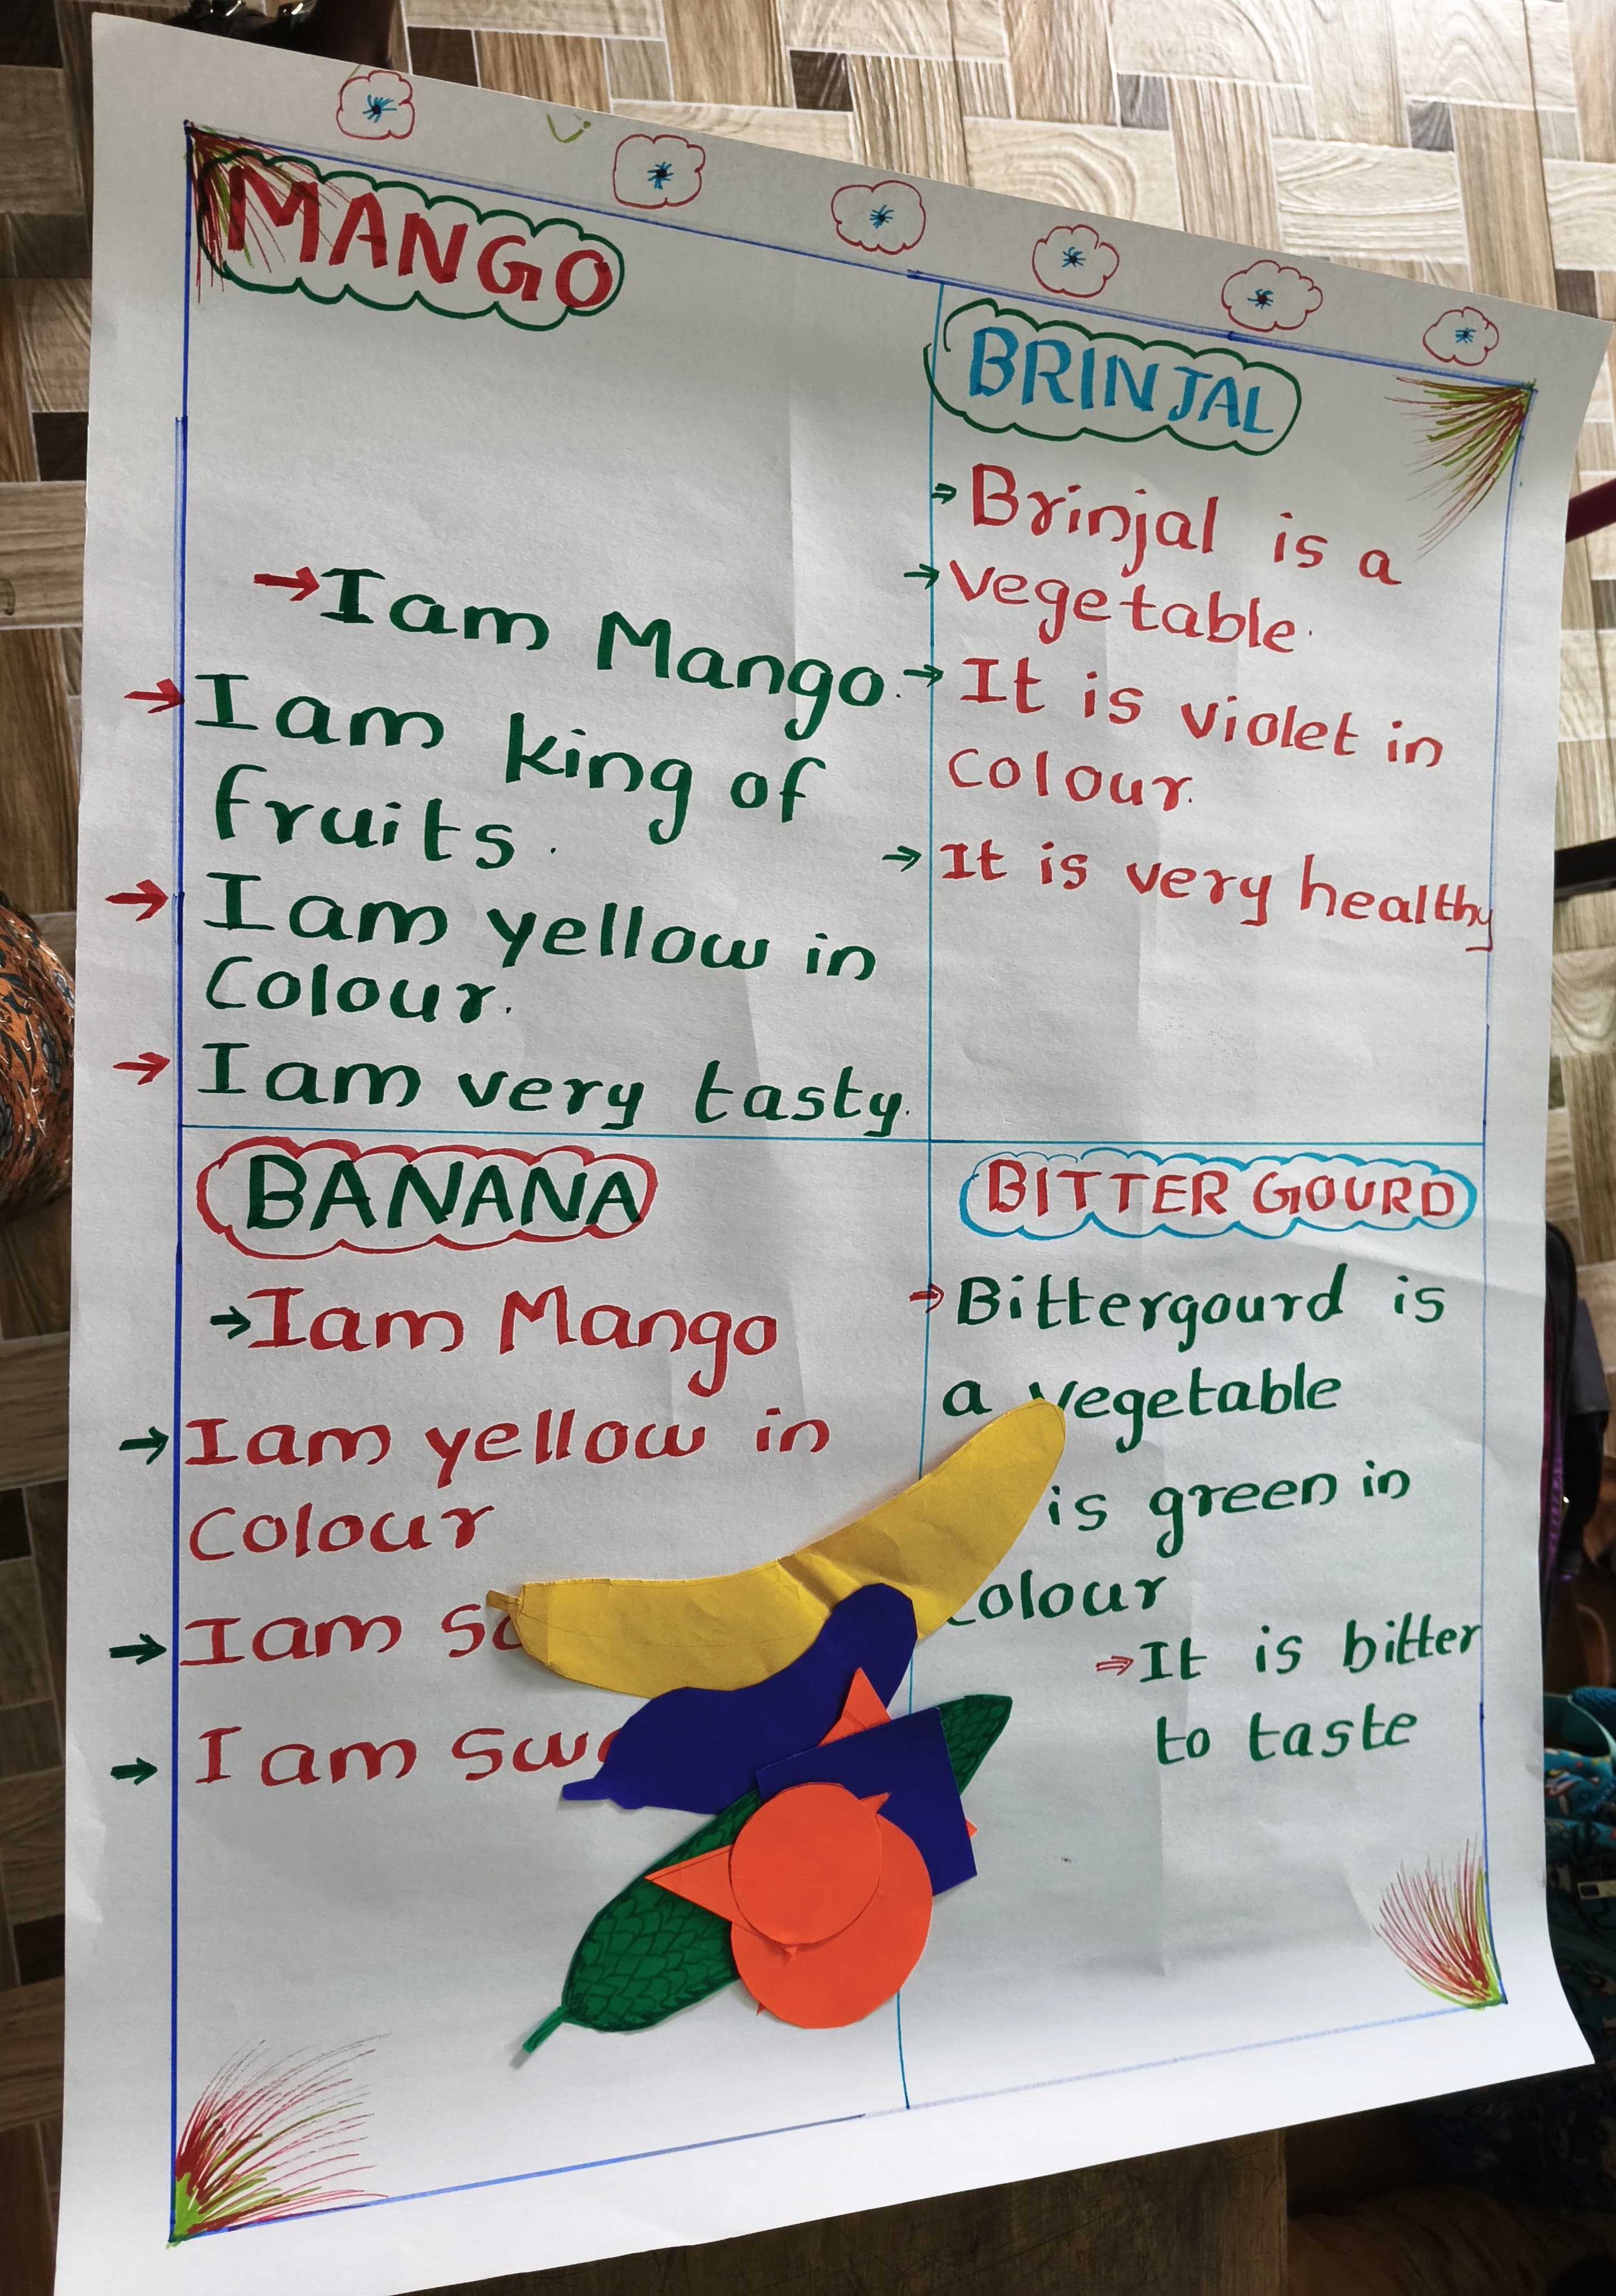 MANGO
→Iam Mango.
→Iam king of
fruits.
→Iam yellow in
Colour.
→Iam very tasty.
BRINJAL
→Brinjal is a
→vegetable.
→It is violet in
Colour.
→It is very healthy
BANANA
→Iam Mango
→Iam yellow in
Colour
→Iam
→Iam
BITTER GOURD
⇒Bittergourd is
a vegetable
is green in
colour
⇒It is bitter
to taste